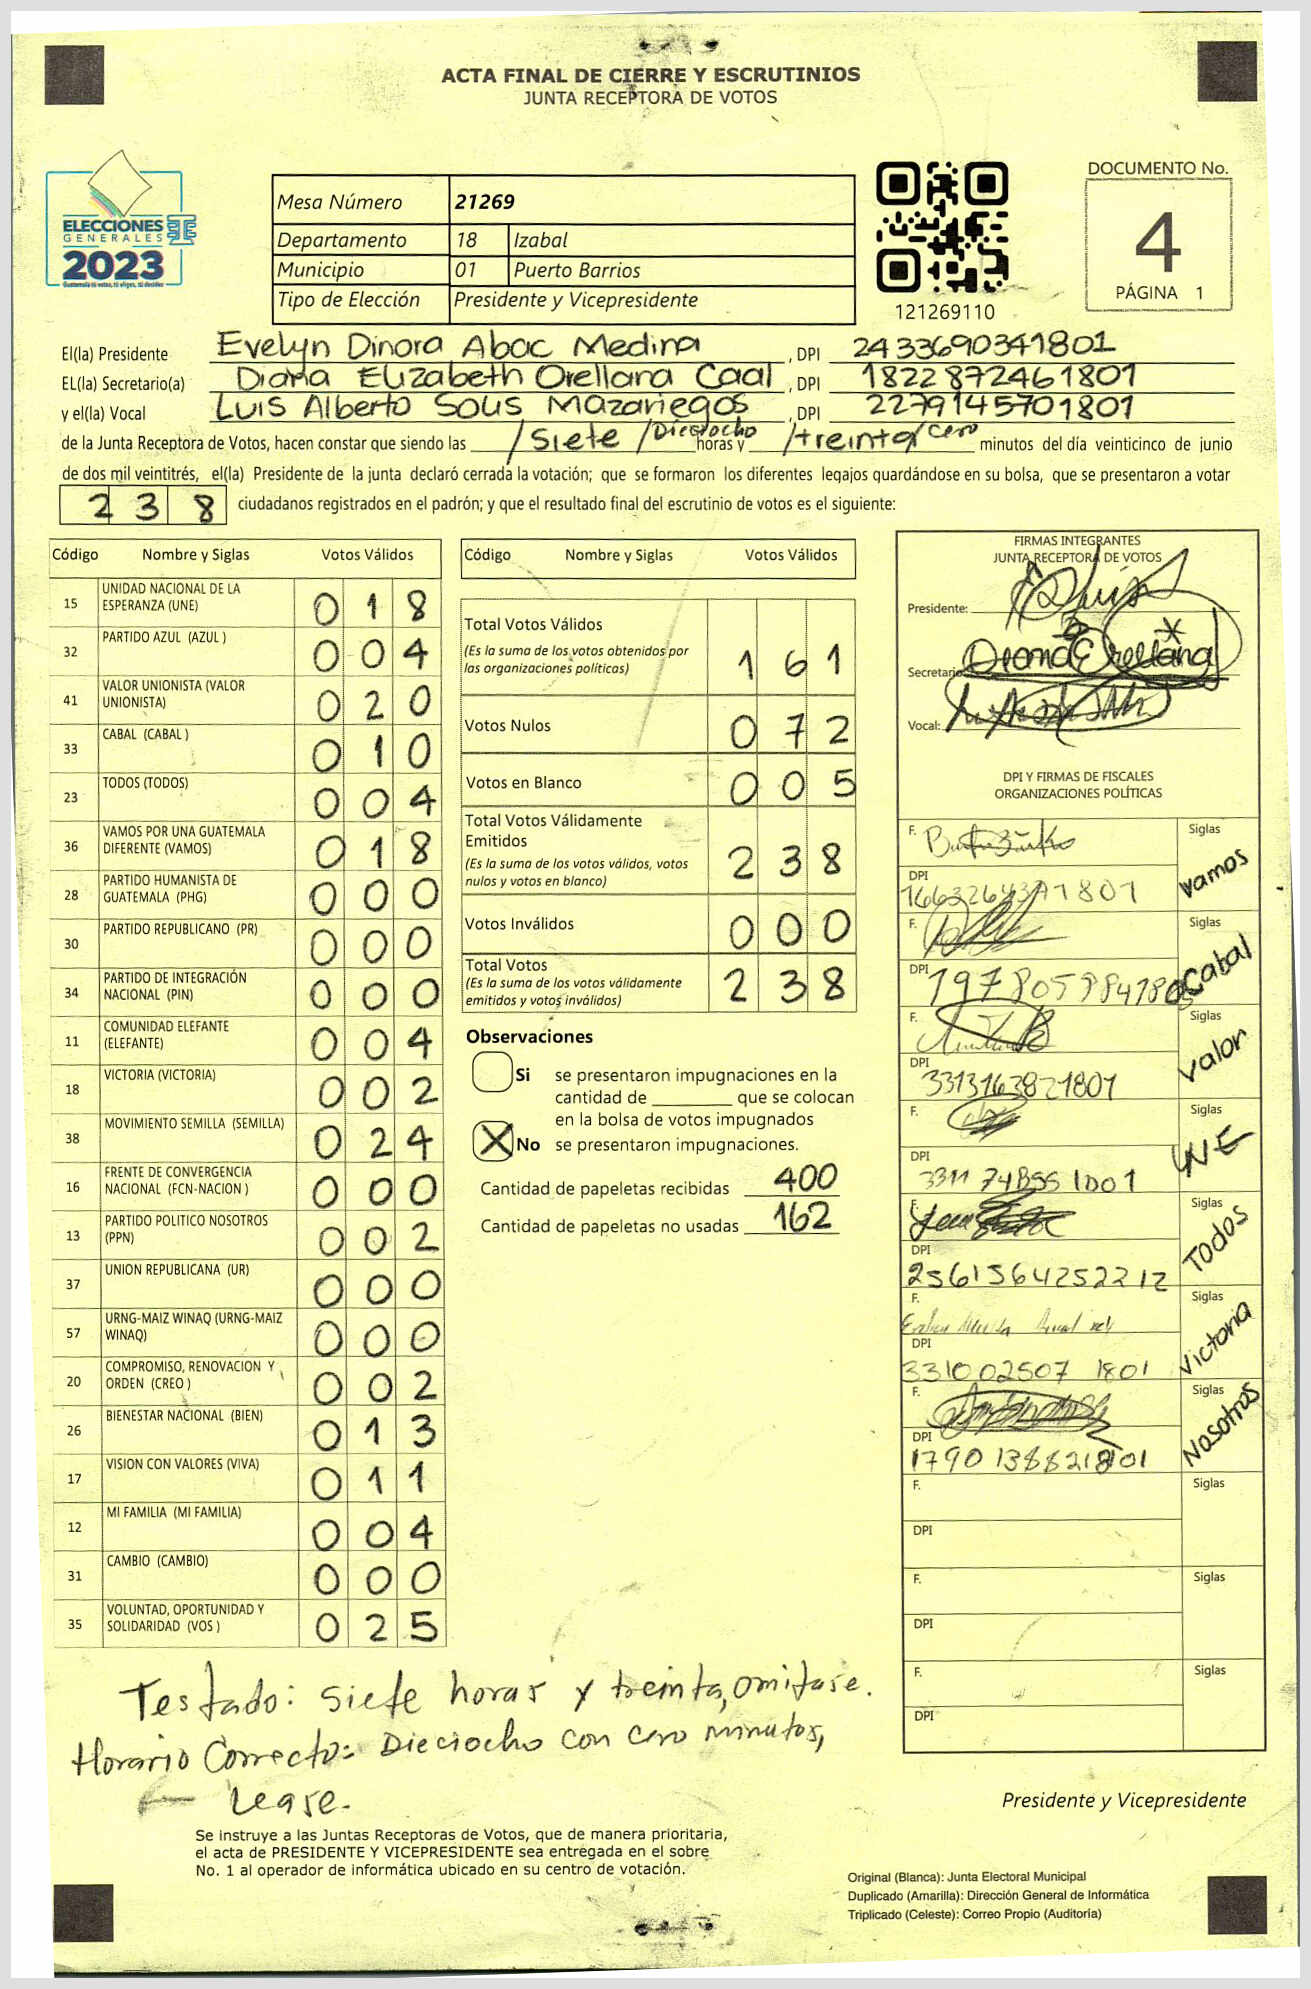 ACTA FINAL DE CIERRE Y ESCRUTINIOS
JUNTA RECEPTORA DE VOTOS
ELECCIONES
GENERALES
2023
Guatemala tú votas, tú eliges, tú decides
Mesa Número 21269
Departamento 18 Izabal
Municipio 01 Puerto Barrios
Tipo de Elección Presidente y Vicepresidente
121269110
DOCUMENTO No.
4
PÁGINA 1
El(la) Presidente Evelyn Dinora Abac Medina , DPI 2433690341801
EL(la) Secretario(a) Diana Elizabeth Orellana Caal , DPI 1822872461801
y el(la) Vocal Luis Alberto Solis Mazariegos , DPI 2279145701801
de la Junta Receptora de Votos, hacen constar que siendo las /Siete /Dieciocho horas y /treinta/cero minutos del día veinticinco de junio
de dos mil veintitrés, el(la) Presidente de la junta declaró cerrada la votación; que se formaron los diferentes legajos guardándose en su bolsa, que se presentaron a votar
238 ciudadanos registrados en el padrón; y que el resultado final del escrutinio de votos es el siguiente:
Código Nombre y Siglas Votos Válidos
15 UNIDAD NACIONAL DE LA ESPERANZA (UNE) 018
32 PARTIDO AZUL (AZUL ) 004
41 VALOR UNIONISTA (VALOR UNIONISTA) 020
33 CABAL (CABAL ) 010
23 TODOS (TODOS) 004
36 VAMOS POR UNA GUATEMALA DIFERENTE (VAMOS) 018
28 PARTIDO HUMANISTA DE GUATEMALA (PHG) 000
30 PARTIDO REPUBLICANO (PR) 000
34 PARTIDO DE INTEGRACIÓN NACIONAL (PIN) 000
11 COMUNIDAD ELEFANTE (ELEFANTE) 004
18 VICTORIA (VICTORIA) 002
38 MOVIMIENTO SEMILLA (SEMILLA) 024
16 FRENTE DE CONVERGENCIA NACIONAL (FCN-NACION ) 000
13 PARTIDO POLITICO NOSOTROS (PPN) 002
37 UNION REPUBLICANA (UR) 000
57 URNG-MAIZ WINAQ (URNG-MAIZ WINAQ) 000
20 COMPROMISO, RENOVACION Y ORDEN (CREO ) 002
26 BIENESTAR NACIONAL (BIEN) 013
17 VISION CON VALORES (VIVA) 011
12 MI FAMILIA (MI FAMILIA) 004
31 CAMBIO (CAMBIO) 000
35 VOLUNTAD, OPORTUNIDAD Y SOLIDARIDAD (VOS ) 025
Código Nombre y Siglas Votos Válidos
Total Votos Válidos
(Es la suma de los votos obtenidos por las organizaciones políticas) 161
Votos Nulos 072
Votos en Blanco 005
Total Votos Válidamente Emitidos
(Es la suma de los votos válidos, votos nulos y votos en blanco) 238
Votos Inválidos 000
Total Votos
(Es la suma de los votos válidamente emitidos y votos inválidos) 238
Observaciones
Si se presentaron impugnaciones en la
cantidad de ________ que se colocan
en la bolsa de votos impugnados
X No se presentaron impugnaciones.
Cantidad de papeletas recibidas 400
Cantidad de papeletas no usadas 162
FIRMAS INTEGRANTES
JUNTA RECEPTORA DE VOTOS
Presidente:
Secretario: Diana Orellana
Vocal:
DPI Y FIRMAS DE FISCALES
ORGANIZACIONES POLÍTICAS
F. Siglas Vamos
DPI
F. Siglas Cabal
DPI
F. Siglas Valor
DPI 3313163821801
F. Siglas UNE
DPI
F. Siglas Todos
DPI 2561564252212
F. Siglas Victoria
DPI 331002507 1801
F. Siglas Nosotros
DPI 1790138821801
F. Siglas
DPI
F. Siglas
DPI
F. Siglas
DPI
Testado: Siete horas y treinta, omitase.
Horario Correcto: Dieciocho con cero minutos,
Lease.
Presidente y Vicepresidente
Se instruye a las Juntas Receptoras de Votos, que de manera prioritaria,
el acta de PRESIDENTE Y VICEPRESIDENTE sea entregada en el sobre
No. 1 al operador de informática ubicado en su centro de votación.
Original (Blanca): Junta Electoral Municipal
Duplicado (Amarilla): Dirección General de Informática
Triplicado (Celeste): Correo Propio (Auditoría)